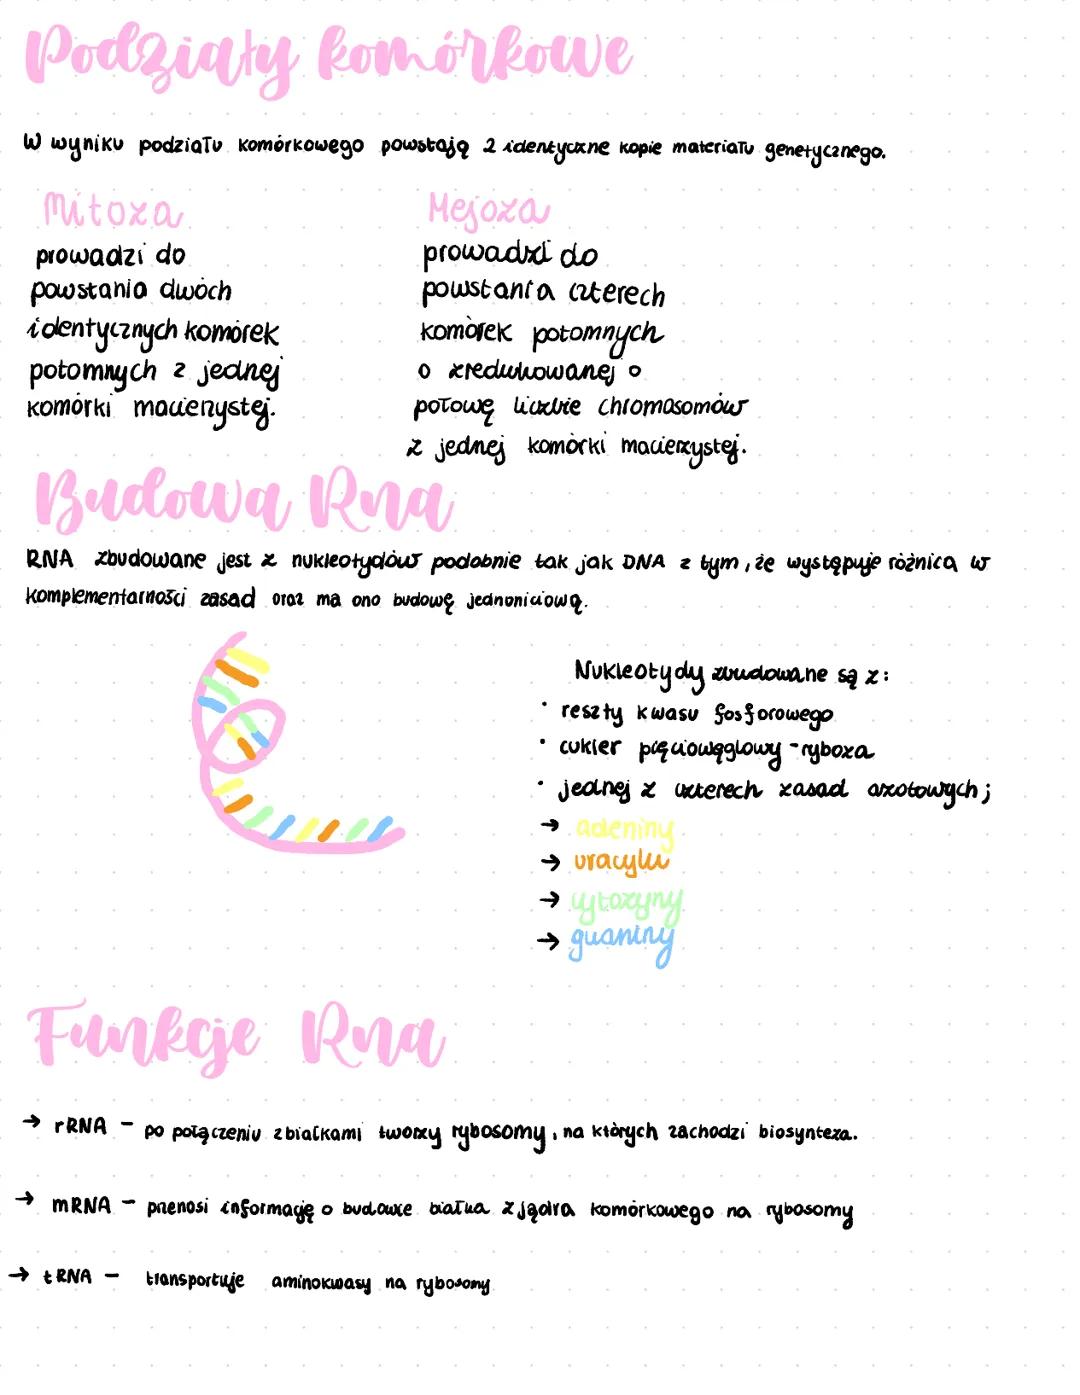 Podziały komórkowe
W wyniku podziału komórkowego powstają 2 identyczne kopie materiału genetycznego.
Mitoza
prowadzi do
powstania dwóch
identycznych komórek
potomnych z jednej
komórki macierzystej.
Mejoza
prowadzi do
powstania czterech
komórek potomnych
o zredukowanej o
połowę liczbie chromosomów
z jednej komórki macierzystej.
Budowa Rna
RNA zbudowane jest z nukleotydów podobnie tak jak DNA z tym, że występuje różnica w
komplementarności zasad oraz ma ono budowę jednoniciową.
Nukleotydy zbudowane są z:
• reszty kwasu fosforowego
• cukier pięciowęglowy - ryboza
• jednej z czterech zasad azotowych;
→ adeniny
→ uracylu
→ cytozyny
→ guaniny
Funkcje Rna
→ rRNA - po połączeniu z białkami tworzy rybosomy, na których zachodzi biosynteza.
→ mRNA - przenosi informację o budowie białka z jądra komórkowego na rybosomy
→ tRNA - transportuje aminokwasy na rybosomy